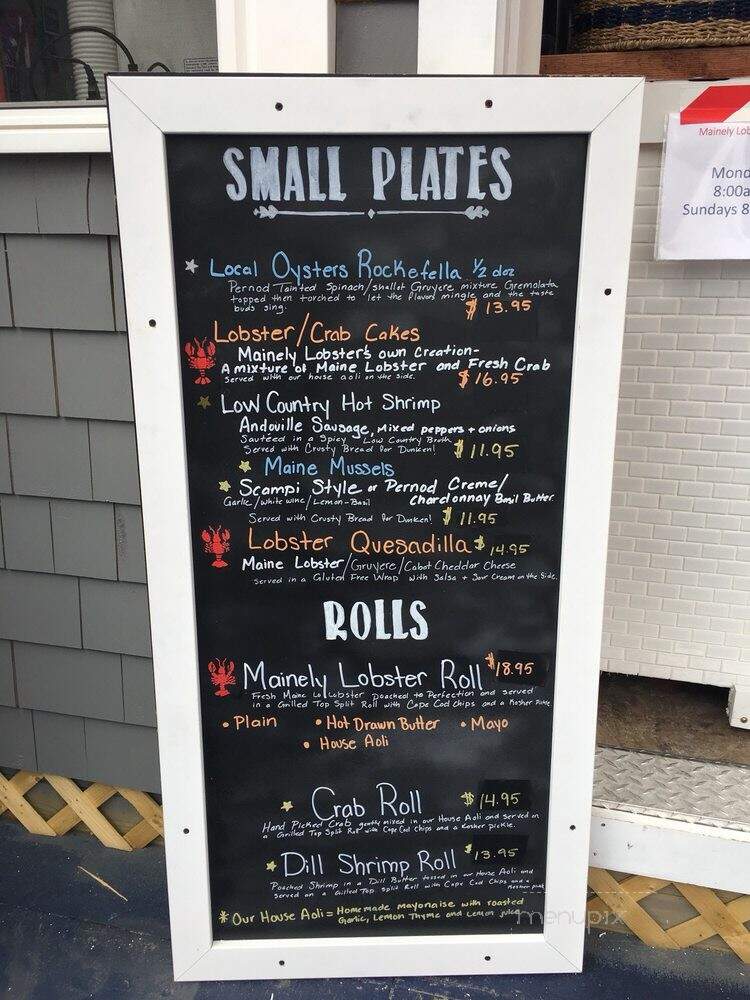 SMALL PLATES
Local Oysters Rockefella 1/2 doz
Pernod Tainted Spinach/shallot Gruyere mixture Gremolata
topped then torched to let the flavors mingle and the taste
buds sing.
$13.95
Lobster/Crab Cakes
Mainely Lobster's own Creation-
A mixture of Maine Lobster and Fresh Crab
Served with our house aoli on the side.
$16.95
Low Country Hot Shrimp
Andoville Sausage, Mixed peppers + onions
Sautéed in a Spicy Low Country Broth
Served with Crusty Bread for Dunken!
$11.95
Maine Mussels
Scampi Style or Pernod Creme/
Garlic/white wine/Lemon-Basil Chardonnay Basil Butter
Served with Crusty Bread for Dunken! $11.95
Lobster Quesadilla $14.95
Maine Lobster/Gruyere/Cabot Cheddar Cheese
Served in a Gluten Free Wrap with Salsa + Sour Cream on the Side.
ROLLS
Mainely Lobster Roll $18.95
Fresh Maine Lobster poached to Perfection and served
in a Grilled Top Split Roll with Cape Cod Chips and a Kosher Pickle
• Plain • Hot Drawn Butter • Mayo
• House Aoli
Crab Roll $14.95
Hand Picked Crab gently mixed in our House Aoli and served on
a Grilled Top Split Roll with Cape Cod Chips and a Kosher pickle.
Dill Shrimp Roll $13.95
Poached Shrimp in a Dill Butter tossed in our House Aoli and
served on a Grilled Top Split Roll with Cape Cod Chips and a
Kosher
* Our House Aoli = Homemade mayonaise with roasted
Garlic, Lemon Thyme and Lemon juice
menupix
Mainely Lob
Mond
8:00a
Sundays 8